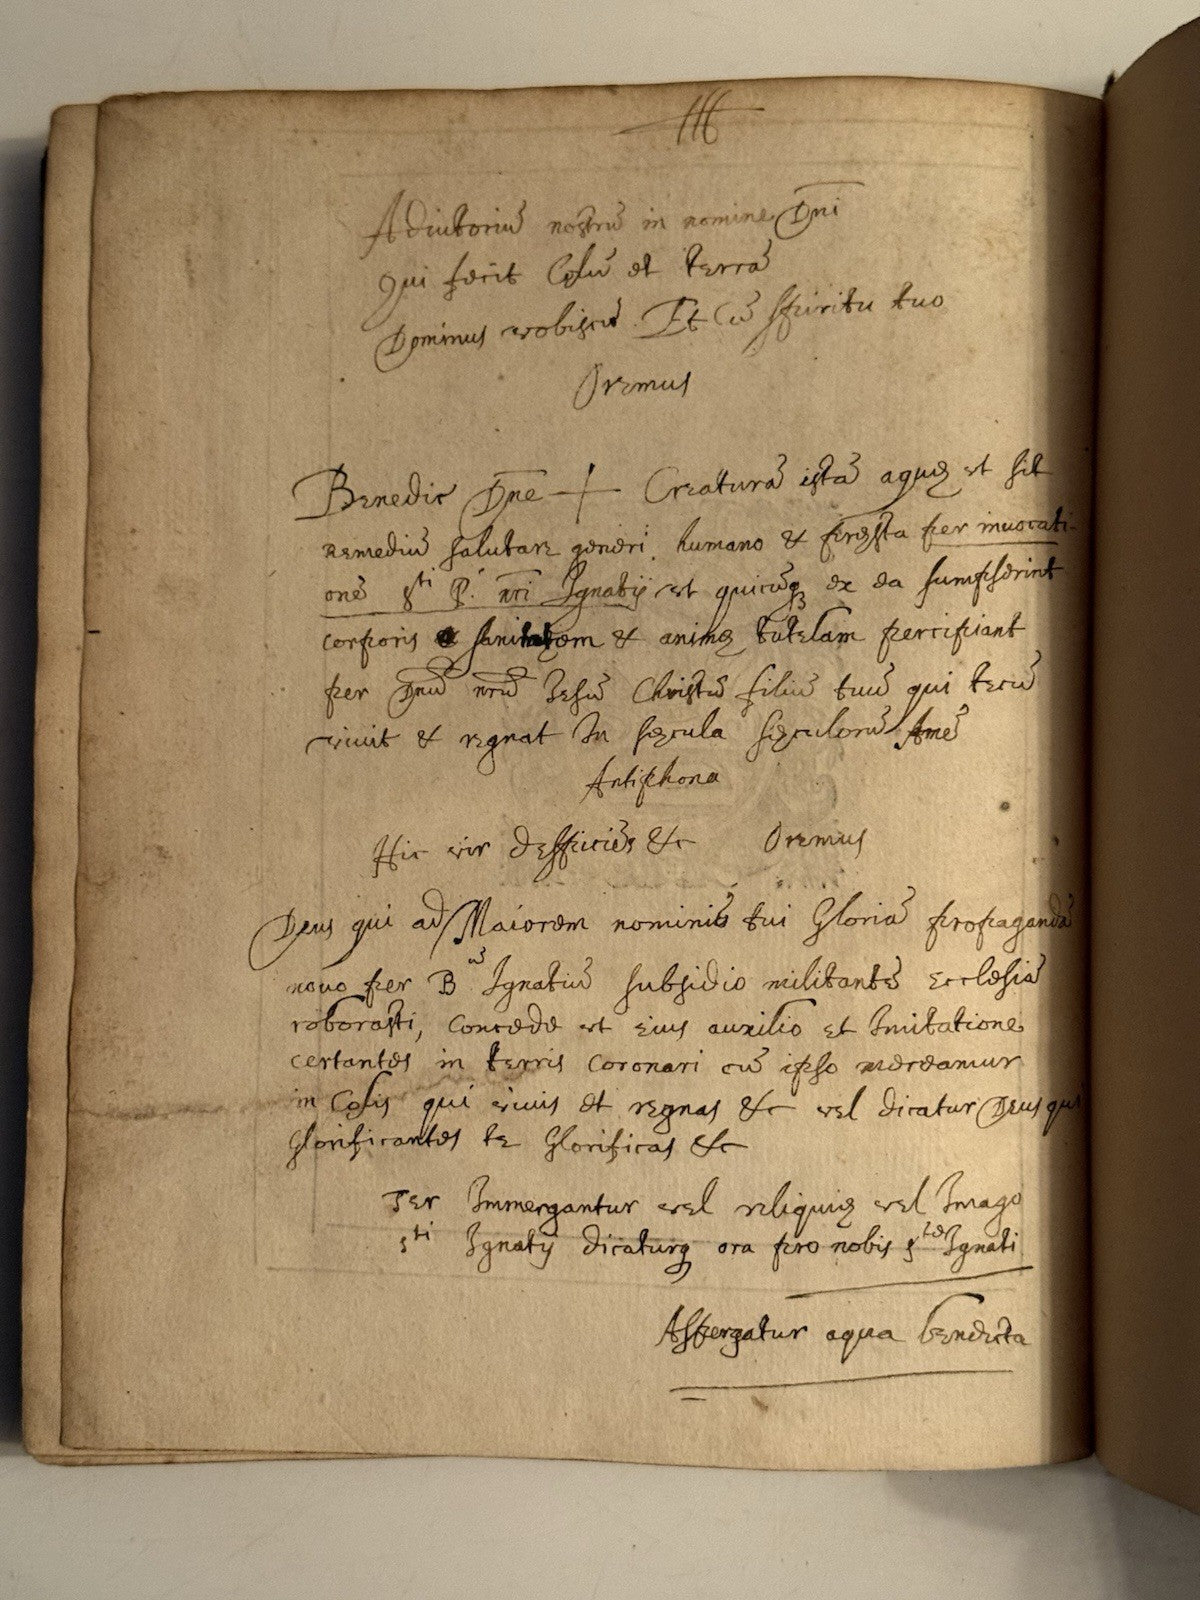 IHS
Adiutoriũ nostrũ in nomine Dñi
Qui fecit Cęlũ et terrã
Dominus vobiscũ. Et Cũ spiritu tuo
Oremus
Benedic Dñe + Creaturã istã aquę et sit
Remediũ salutare generi humano & pręsta per inuocati-
onẽ sti P. nri Ignatij et quicũq3 ex ea sumpserint
corporis sanitatem & animę tutelam percipiant
per Dnũ nrũ Jesũ Christũ filiũ tuũ qui tecũ
viuit & regnat In sęcula sęculorũ Amẽ
Antiphona
Hic vir despiciẽs &c Oremus
Deus qui ad Maiorem nominis tui Gloriã propagandã
nouo per Bũ Ignatiũ subsidio militantẽ Ecclesiã
roborasti, Concede et eius auxilio et Imitatione
certantes in terris coronari cũ ipso mereamur
in Cęlis qui viuis et regnas &c vel dicatur Deus qui
Glorificantes te Glorificas &c
Ter Immergantur vel reliquię vel Imago
sti Ignatij dicaturq ora pro nobis ste Ignati
Aspergatur aqua benedicta